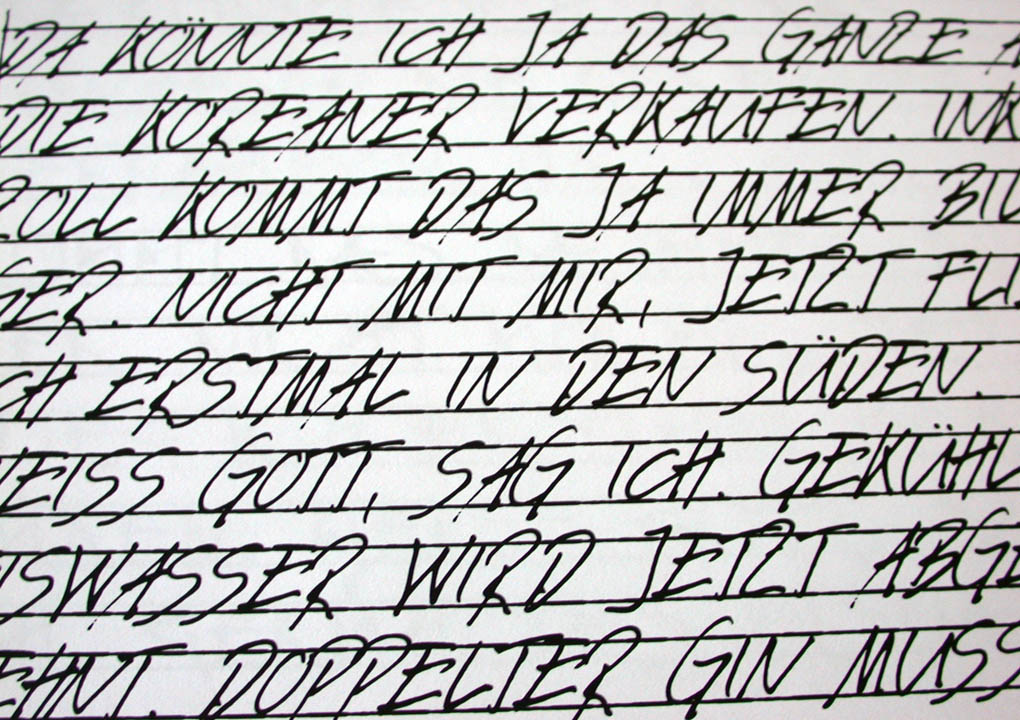 DA KÖNNTE ICH JA DAS GANZE A
DIE KOREANER VERKAUFEN. INK
ZOLL KOMMT DAS JA IMMER BIL
GER. NICHT MIT MIR, JETZT FLI
CH ERSTMAL IN DEN SÜDEN.
EISS GOTT, SAG ICH. GEKÜHL
ISWASSER WIRD JETZT ABGE
EHNT. DOPPELTER GIN MUSS